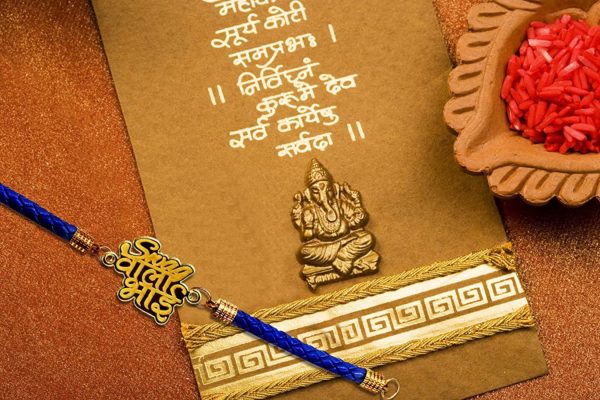 सूर्य कोटी
समप्रभः ।
॥ निर्विघ्नं
कुरूमे देव
सर्व कार्येषु
सर्वदा ॥
Swag
वाला
भाई